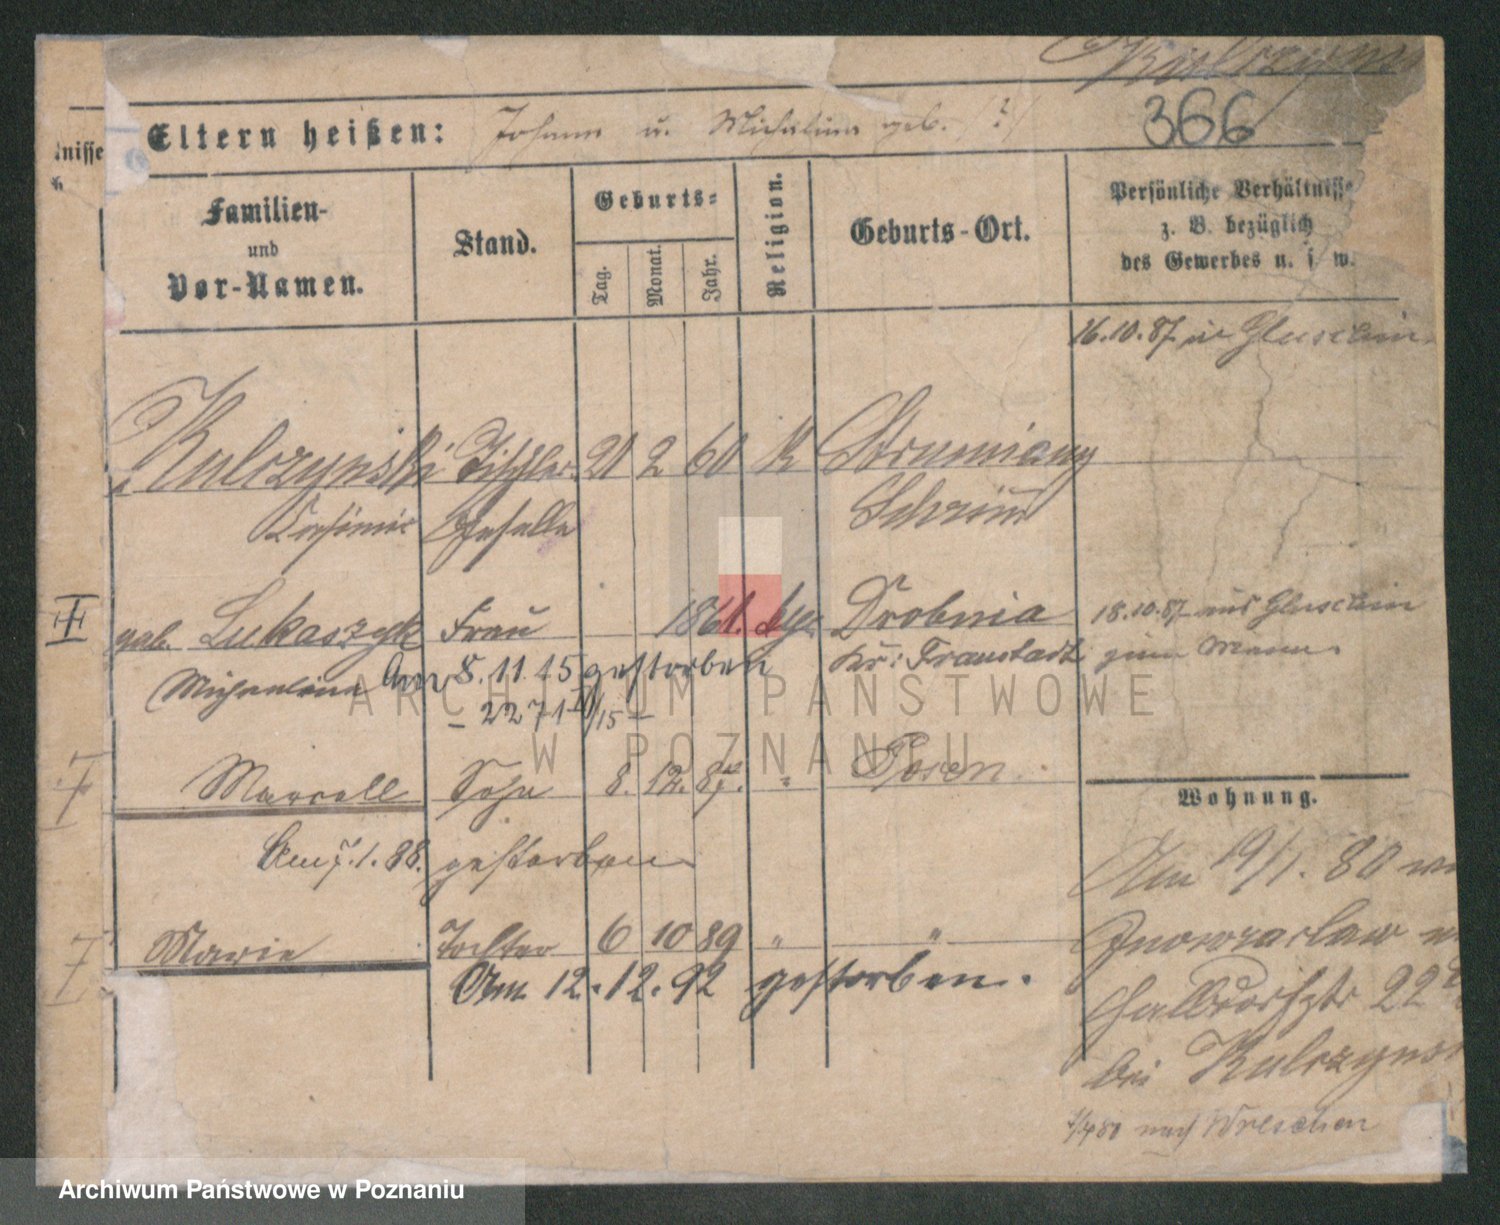 Kulczynski
Eltern heißen: Johann u. Michalina geb. (?)
366
nisse
Familien-
und
Vor-Namen.
Stand.
Geburts-
Tag.
Monat.
Jahr.
Religion.
Geburts-Ort.
Persönliche Verhältnisse
z. B. bezüglich
des Gewerbes u. s. w.
16.10.87. in Gluschin
Kulczynski Tischler 21 2 60 K Strumiany
Kasimir Geselle Schrimm
geb. Lukaszyk Frau 1861. Drobnia 18.10.87 aus Gluschin
Michalina Am 8.11.15 gestorben Kr: Fraustadt zum Mann.
- 2271 II/15 -
Marcell Sohn 8. 12. 87. " Posen.
Wohnung.
Am 7.1.88. gestorben
Am 19/1. 80
Marie Tochter 6 10 89 " "
Inowrazlaw
Am 12.12.92 gestorben.
22
bei Kulczynski
1/4 80 nach Wreschen
ARCHIWUM PAŃSTWOWE
W POZNANIU
Archiwum Państwowe w Poznaniu